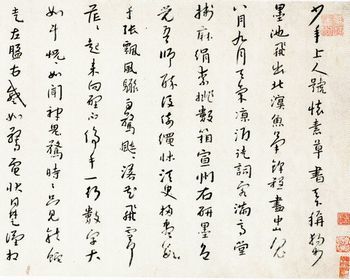 少年上人號懷素草書天下稱獨步
墨池飛出北溟魚筆鋒殺盡中山兔
八月九月天氣涼酒徒詞客滿高堂
牋麻絹素排數箱宣州石硯墨色
光吾師醉後倚繩床須臾掃盡數
千張飄風驟雨驚颯颯落花飛雪何
茫茫起來向壁不停手一行數字大
如斗恍恍如聞神鬼驚時時只見龍蛇
走左盤右蹙如驚電狀同楚漢相